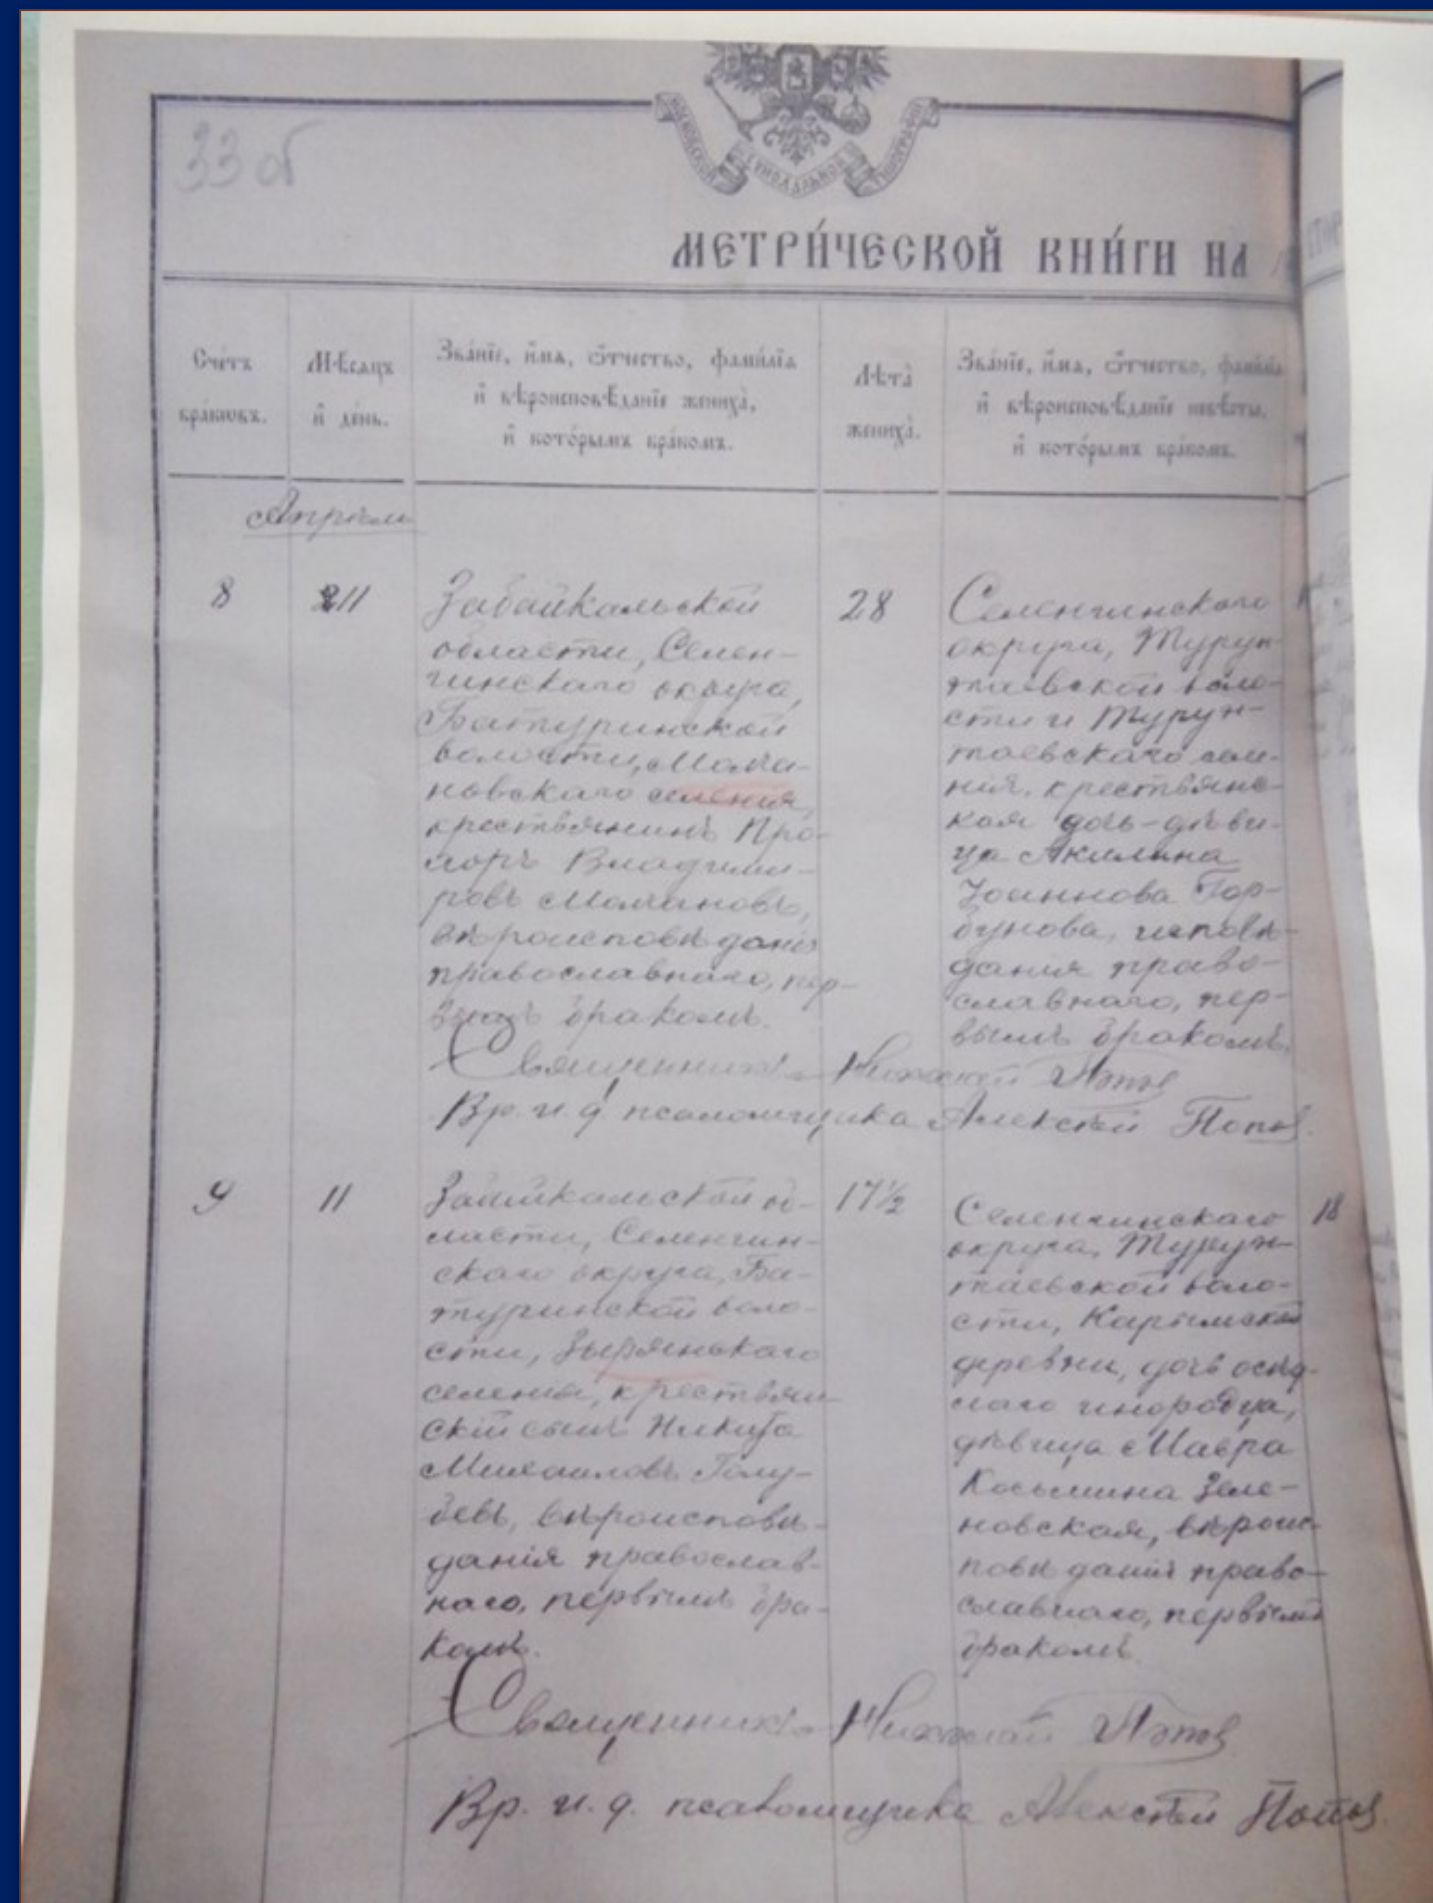 33 об
МОСКОВСКОЙ СѴНОДАЛЬНОЙ ТѴПОГРАФІИ
МЕТРИ́ЧЕСКОЙ КНИ́ГИ НА
Сче́тъ
бра́ковъ.
Мѣ́сяцъ
и҆ де́нь.
Зва́нїе, и҆́мя, ѻ҆́тчество, фами́лїя
и҆ вѣроисповѣ́данїе жениха̀,
и҆ кото́рымъ бра́комъ.
Лѣта̀
жениха̀.
Зва́нїе, и҆́мя, ѻ҆́тчество, фами́лїя
и҆ вѣроисповѣ́данїе невѣ́сты,
и҆ кото́рымъ бра́комъ.
Апрѣль
8
11
Забайкальской
области, Селен-
гинскаго округа,
Батуринской
волости, Молча-
новскаго селенія,
крестьянинъ Про-
хоръ Владими-
ровъ Молчановъ,
вѣроисповѣданія
православнаго, пер-
вымъ бракомъ.
28
Селенгинскаго
округа, Турун-
таевской воло-
сти и Турун-
таевскаго селе-
нія, крестьянс-
кая дочь-дѣви-
ца Акилина
Іоаннова Гор-
бунова, исповѣ-
данія право-
славнаго, пер-
вымъ бракомъ.
Священникъ Николай Попов
Вр. и. д. псаломщика Алексѣй Попов.
9
11
Забайкальской об-
ласти, Селенгин-
скаго округа, Ба-
туринской воло-
сти, Зырянскаго
селенія, крестьян-
скій сынъ Никита
Михаиловъ Голу-
бевъ, вѣроисповѣ-
данія православ-
наго, первымъ бра-
комъ.
17½
Селенгинскаго
округа, Турун-
таевской воло-
сти, Карымской
деревни, дочь осѣд-
лаго инородца,
дѣвица Мавра
Косьмина Зеле-
новская, вѣроис-
повѣданія право-
славнаго, первымъ
бракомъ.
18
Священникъ Николай Попов
Вр. и. д. псаломщика Алексѣй Попов.